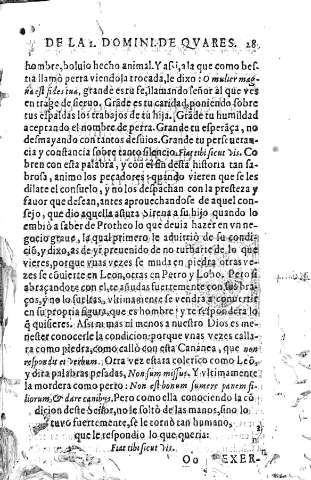 DE LA 2. DOMINI. DE QVARES. 28
hombre, boluio hecho animal. Y assi, a la que como bes-
tia llamò perra viendola trocada, le dixo: O mulier mag-
na est fides tua, grande es tu fe, llamando señor al que ves
en trage de sieruo. Grãde es tu caridad, poniendo sobre
tus espaldas los trabajos de tu hija. Grãde tu humildad
aceptando el nombre de perra. Grande tu esperãça, no
desmayando con tantos desuios. Grande tu perseueran-
cia y constancia sobre tanto silencio. Fiat tibi sicut vis. Co
bren con esta palabra, y con el fin desta historia tan sa-
brosa, animo los pecadores: quando vieren que se les
dilate el consuelo, y no los despachan con la presteza y
fauor que desean, antes aprouechandose de aquel con-
sejo, que dio aquella astuta Sirena a su hijo quando lo
embiò a saber de Protheo lo que deuia hazer en vn ne-
gocio graue, la qual primero le aduirtio de su condi-
ciõ, y dixo, as de yr preuenido de no turbarte de lo que
vieres, porque vnas vezes se muda en piedra otras ve-
zes se cõuierte en Leon, otras en Perro y Lobo. Pero si
abraçandote con el, te añudas fuertemente con sus bra-
ços, y no lo sueltas, vltimamente se vendra a conuertir
en su propria figura, que es hombre: y te respondera lo
q̃ quisieres. Assi ni mas ni menos a nuestro Dios es me-
nester conocerle la condicion: porque vnas vezes calla-
ra como piedra, como callò con esta Cananea, que non
respondit ei verbum. Otra vez estara colerico como Leõ,
y dira palabras pesadas, Non sum missus. Y vltimamente
la mordera como perro: Non est bonum sumere panem fi-
liorum, & dare canibus. Pero como ella conociendo la cõ
dicion deste Señor, no le soltò de las manos, sino lo
tuuo fuertemente, se le cornò tan humano,
que le respondio lo que queria:
Fiat tibi sicut vis.
Oo EXER-